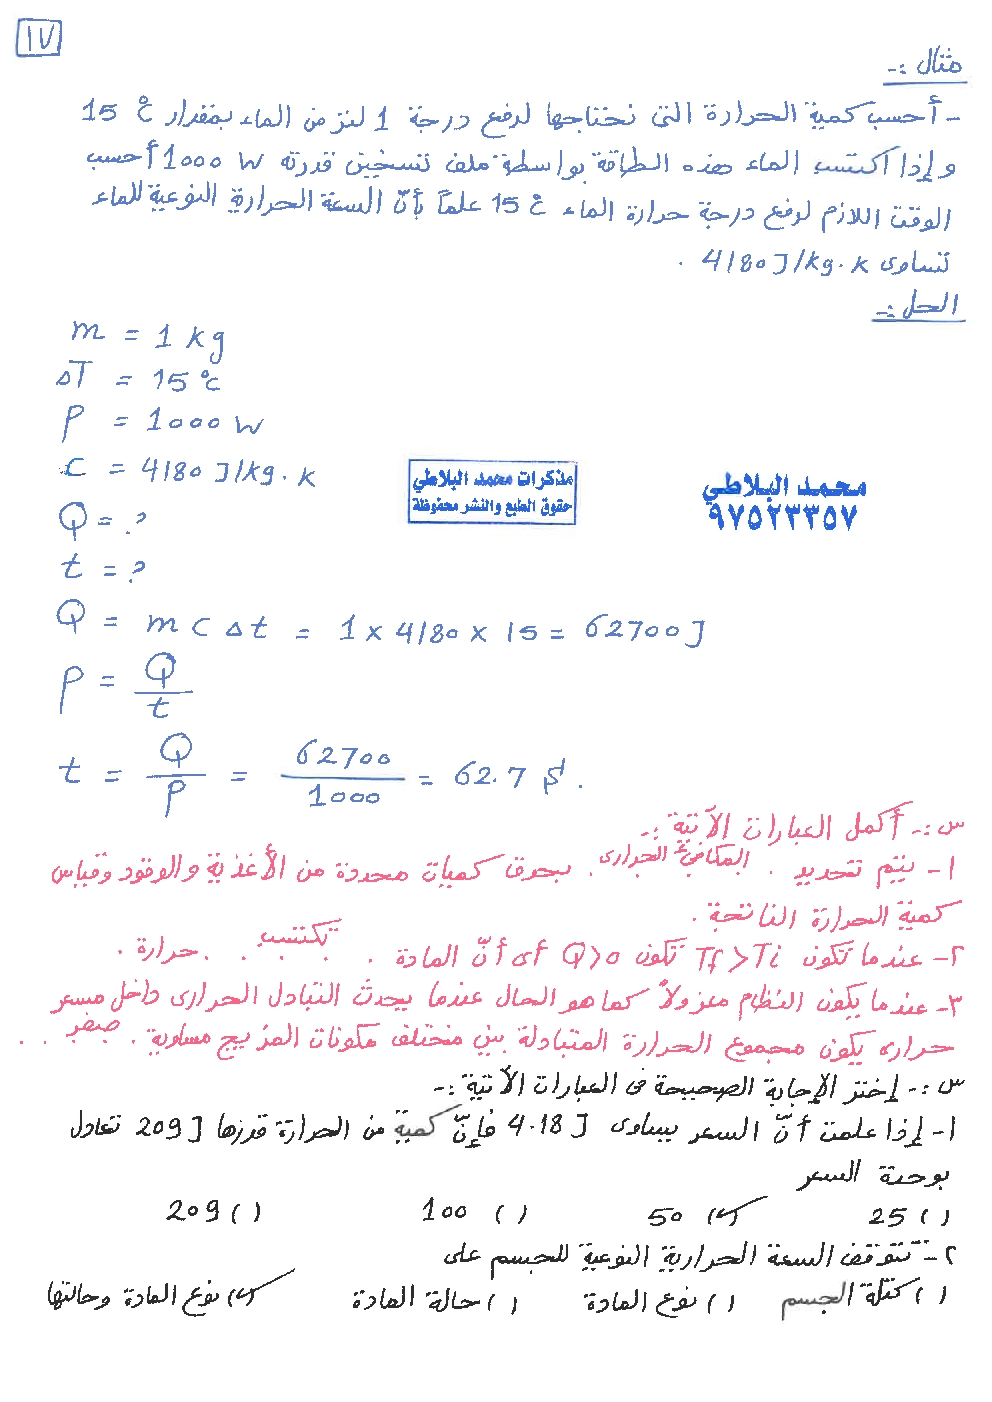 ١٧
مثال :-
- أحسب كمية الحرارة التى نحتاجها لرفع درجة 1 لتر من الماء بمقدار 15 °C
و إذا اكتسب الماء هذه الطاقة بواسطة ملف تسخين قدرته 1000 W أحسب
الوقت اللازم لرفع درجة حرارة الماء 15 °C علماً بأنّ السعة الحرارية النوعية للماء
تساوى 4180 J/kg.K .
الحل :-
m = 1 kg
ΔT = 15 °C
P = 1000 W
C = 4180 J/kg.K
مذكرات محمد البلاطي
حقوق الطبع والنشر محفوظة
محمد البلاطي
٩٧٥٢٣٣٥٧
Q = ?
t = ?
Q = m C Δt = 1 x 4180 x 15 = 62700 J
P = Q / t
t = Q / P = 62700 / 1000 = 62.7 s .
س :- أكمل العبارات الآتية :-
١- يتم تحديد . المكافىء الحرارى . بحرق كميات محددة من الأغذية والوقود وقياس
كمية الحرارة الناتجة .
٢- عندما تكون Tf > Ti تكون Q > 0 أى أنّ المادة . يكتسب . . حرارة .
٣- عندما يكون النظام معزولاً كما هو الحال عندما يحدث التبادل الحرارى داخل مسعر
حرارى يكون مجموع الحرارة المتبادلة بين مختلف مكونات المزيج مساوية . صفر . .
س :- إختر الإجابة الصحيحة فى العبارات الآتية :-
١- إذا علمت أنّ السعر يساوى 4.18 J فإنّ كمية من الحرارة قدرها 209 J تعادل
بوحدة السعر
( ) 25 (✓) 50 ( ) 100 ( ) 209
٢- تتوقف السعة الحرارية النوعية للجسم على
( ) كتلة الجسم ( ) نوع المادة ( ) حالة المادة (✓) نوع المادة وحالتها